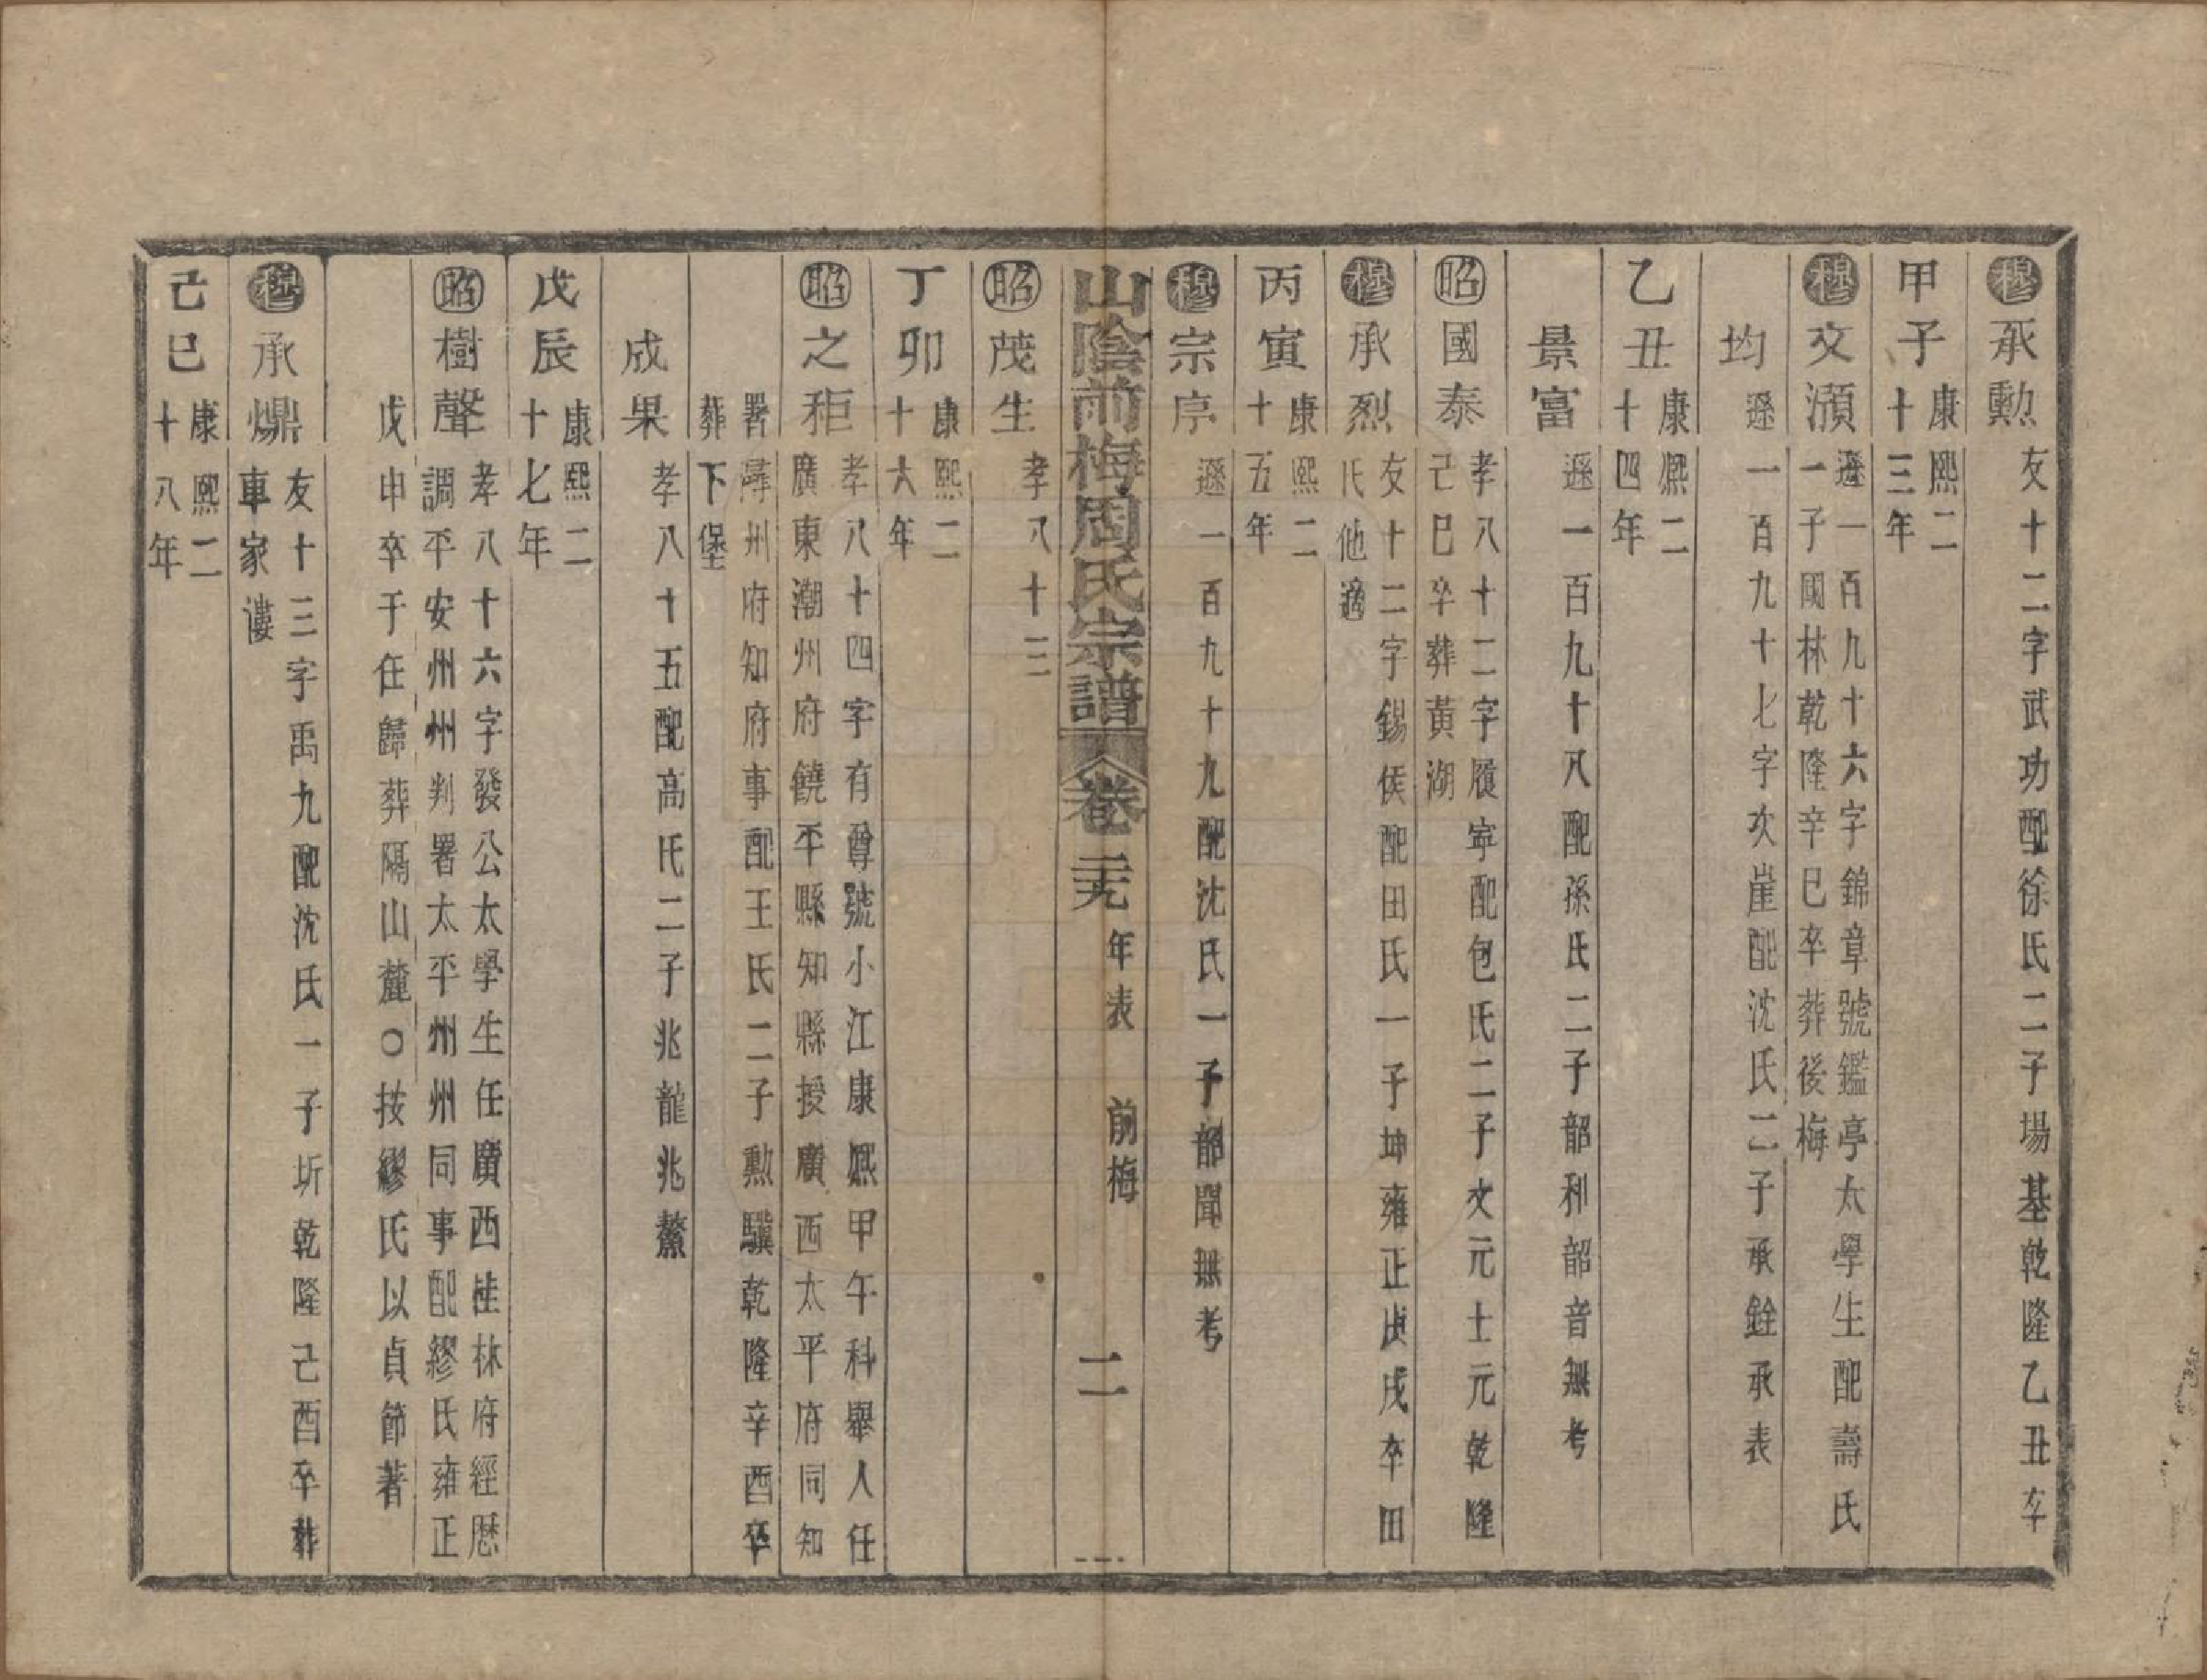 穆 承勲 友十二字武功配徐氏二子場基乾隆乙丑卒
甲子 康熙二十三年
穆 文澦 遜一百九十六字錦章號鑑亭太學生配壽氏
一子國林乾隆辛巳卒葬後梅
均 遜一百九十七字次崖配沈氏二子承銓承表
乙丑 康熙二十四年
景富 遜一百九十八配孫氏二子韶和韶音無考
昭 國泰 孝八十二字履寧配包氏二子文元士元乾隆
己巳卒葬黃湖
穆 承烈 友十二字錫侯配田氏一子坤雍正庚戌卒田
氏他適
丙寅 康熙二十五年
穆 宗序 遜一百九十九配沈氏一子韶聞無考
山陰前梅周氏宗譜 卷二十九 年表 前梅 二
昭 茂生 孝八十三
丁卯 康熙二十六年
昭 之秬 孝八十四字有尊號小江康熙甲午科舉人任
廣東潮州府饒平縣知縣授廣西太平府同知
署潯州府知府事配王氏二子勲驥乾隆辛酉卒
葬下堡
成果 孝八十五配高氏二子兆龍兆鰲
戊辰 康熙二十七年
昭 樹聲 孝八十六字發公太學生任廣西桂林府經歷
調平安州州判署太平州州同事配繆氏雍正
戊申卒于任歸葬隔山麓○按繆氏以貞節著
穆 承鼎 友十三字禹九配沈氏一子圻乾隆己酉卒葬
車家漊
己巳 康熙二十八年